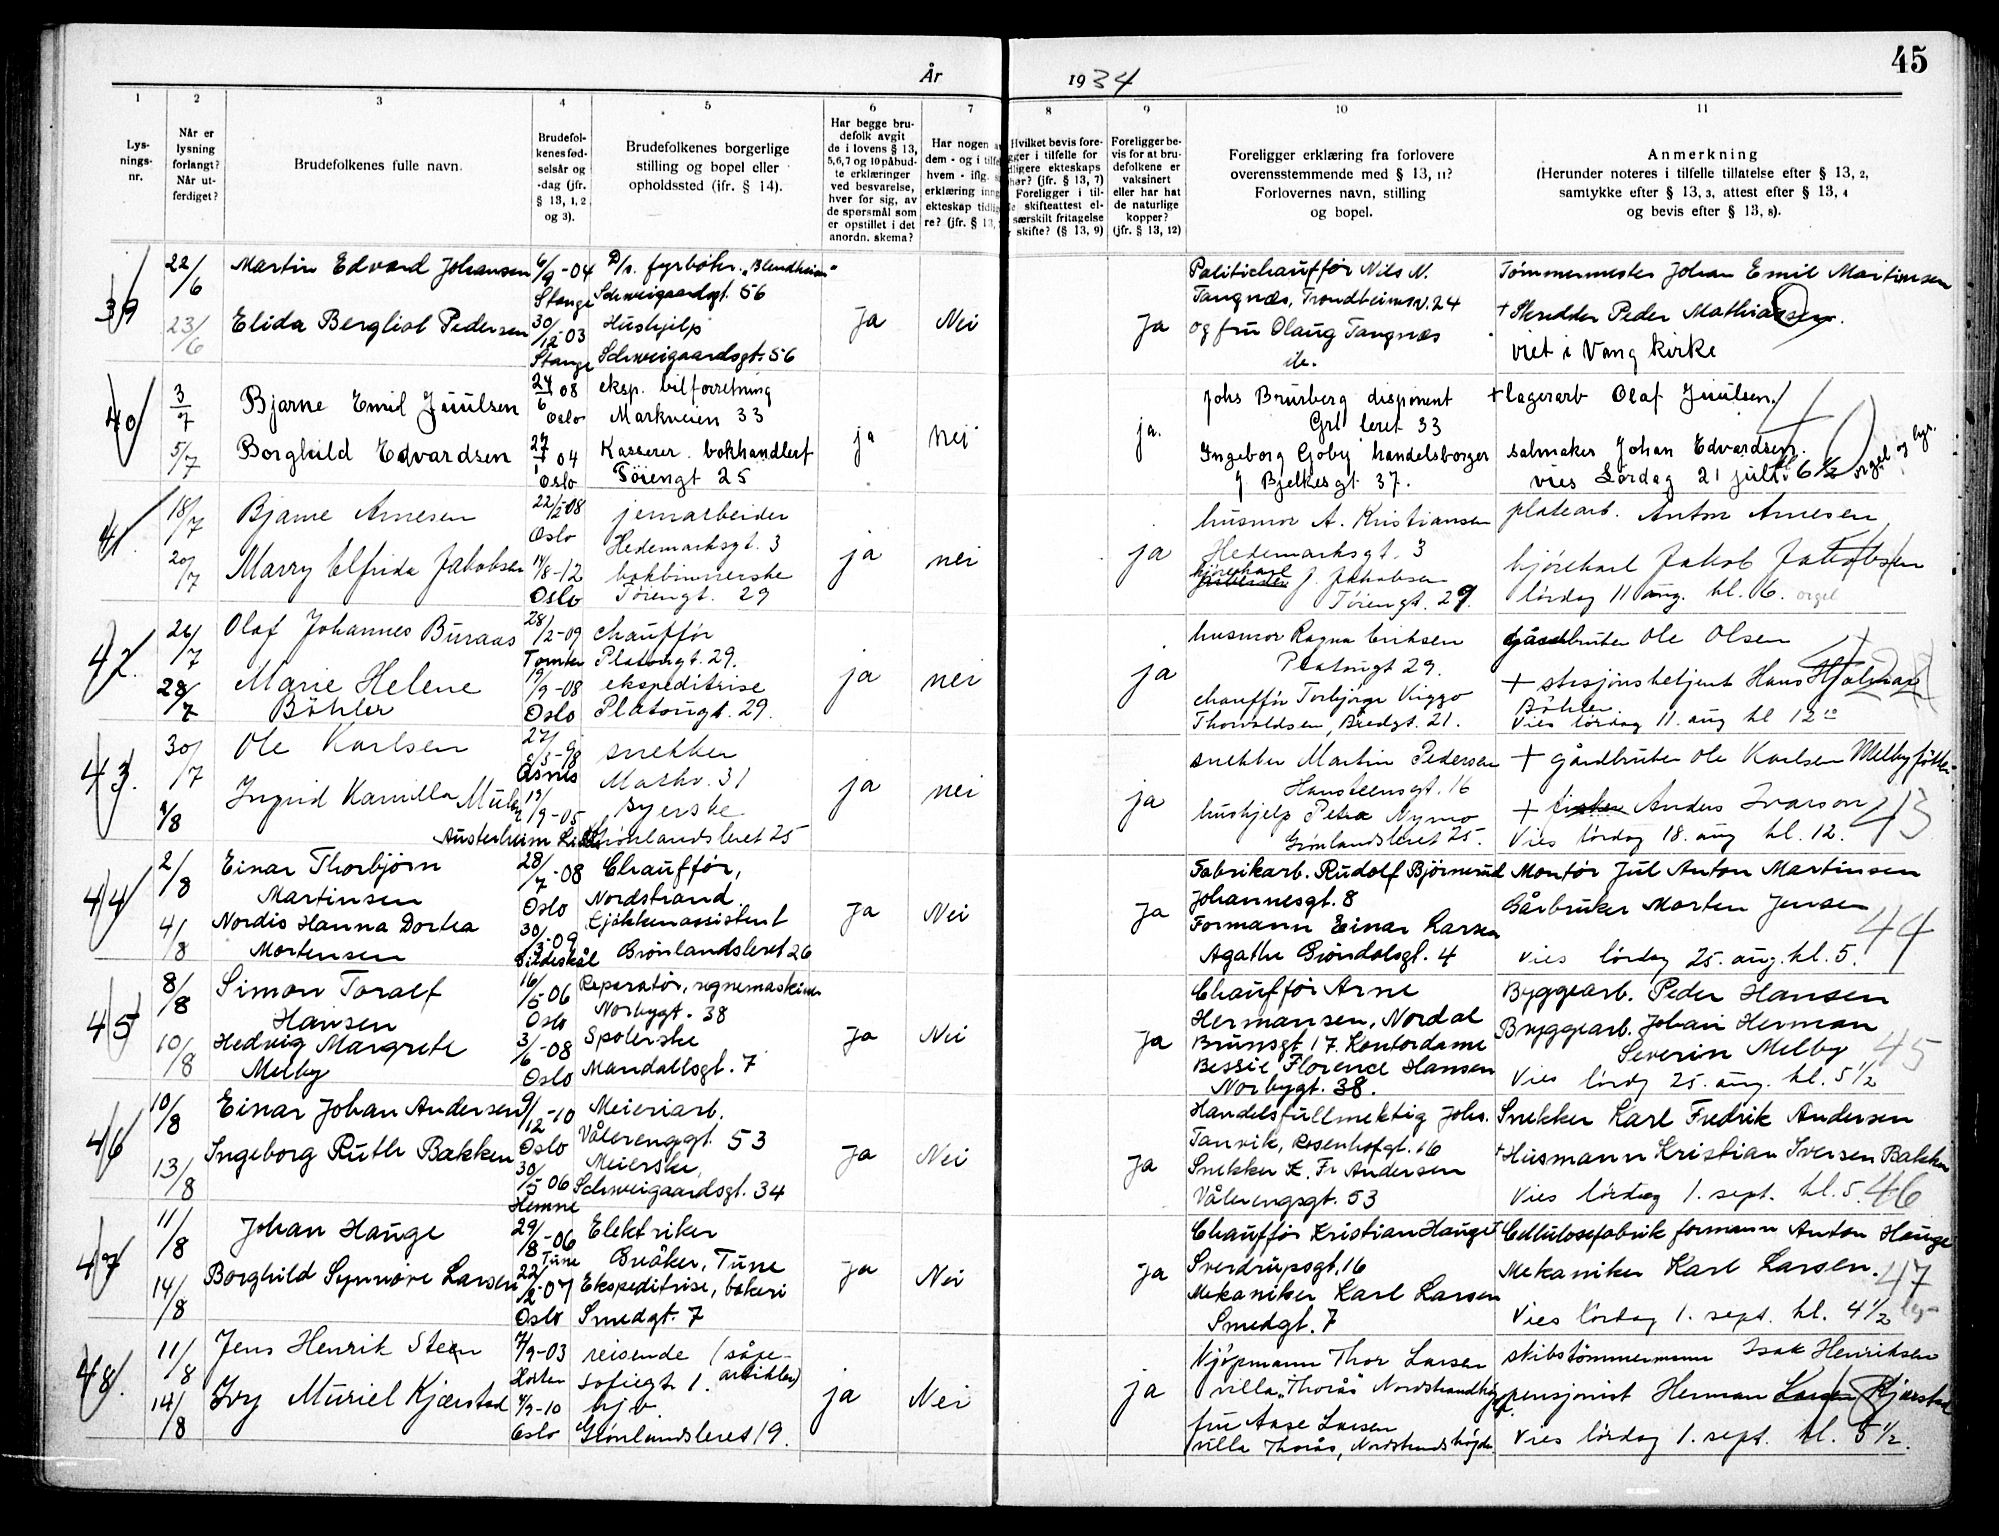 45
År 1934
1 2 3 4 5 6 7 8 9 10 11
Lysningsnr.
Når er lysning forlangt? Når utferdiget?
Brudefolkenes fulle navn.
Brudefolkenes fødselsår og -dag (jfr. § 13, 1, 2 og 3).
Brudefolkenes borgerlige stilling og bopel eller opholdssted (ifr. § 14).
Har begge brudefolk avgit de i lovens § 13, 5,6,7 og 10 påbudte erklæringer ved besvarelse, hver for sig, av de spørsmål som er opstillet i det anordn. skema?
Har nogen a
dem - og i tilfe
hvem - iflg. s
erklæring inng
ekteskap tidlig
re? (jfr. § 13,
Hvilket bevis fore-
gger i tilfelle for
dligere ekteskaps
hør? (jfr. § 13, 7)
Foreligger i til-
skifteattest el-
særskilt fritagelse
skifte? (§ 13, 9)
Foreligger bevis for at brudefolkene er vaksinert eller har hat de naturlige kopper? (jfr. § 13, 12)
Foreligger erklæring fra forlovere overensstemmende med § 13, 11? Forlovernes navn, stilling og bopel.
Anmerkning
(Herunder noteres i tilfelle tillatelse efter § 13, 2, samtykke efter § 13, 3, attest efter § 13, 4 og bevis efter § 13, 8).
39
22/6 Martin Edvard Johansen 6/9-04 Stange D/s. fyrbøter. "Blendheim" Schweigaardsgt. 56
23/6 Elida Bergliot Pedersen 30/12-03 Stange Hushjelp Schweigaardsgt. 56
Ja Nei Ja
Politichauffør Nils N.
Tangnæs, Trondheimsv. 24
og fru Olaug Tangnæs
Tømmermester Johan Emil Martinsen
+ Skredder Peder Mathiasen.
viet i Vang kirke
40
3/7 Bjarne Emil Juulsen 24/6 08 Oslo eksp. bilforretning Markveien 33
5/7 Borghild Edvardsen 27/1 04 Oslo Kasserer. bokhandlert Töiengt 25
ja nei ja.
Johs Brurberg disponent
Grl leret 33
Ingeborg Gjøby handelsborger
J Bjelkesgt 37.
+ lagerarb Olaf Juulsen.
salmaker Johan Edvardsen.
vies Lørdag 21 juli kl 6 1/2 orgel og lys.
41.
18/7 Bjarne Arnesen 22/2-08 Oslo jernarbeider Hedemarksgt. 3
20/7 Marry Elfrida Jakobsen 14/8-12 Oslo bokbinnerske Töiengt. 29
ja nei ja
husmor A. Kristiansen
Hedemarksgt. 3
kjørekarl J. Jakobsen
Töiengt. 29.
platearb. Anton Arnesen
kjørekarl Jakob Jakobsen
lørdag 11 aug. kl. 6. orgel
42.
26/7 Olaf Johannes Buraas 28/2-09 Tomter chauffør Platougt. 29.
28/7 Marie Helene Böhler 19/9-08 Oslo ekspeditrise Platougt. 29.
ja nei ja
husmor Ragna Eriksen
Platougt 29.
chauffør Torbjørn Viggo
Thorvaldsen, Bredgt. 21.
Gårdbruker Ole Olsen
+ stasjonsbetjent Hans Hjalmar
Böhler.
Vies lørdag 11. aug kl 12
43.
30/7 Ole Karlsen Åsnes snekker Markv. 31
1/8 Ingrid Kamilla 13/9-05 Austerheim syerske Grønlandsleret 25
ja nei ja
snekker Martin Pedersen
Hansteensgt. 16
hushjelp Petra Nymo
Grønlandsleret 25.
+ gårdbruker Ole Karlsen
+ fisker Anders Ivarson 43
Vies lørdag 18. aug kl. 12.
44
2/8 Einar Thorbjørn Martinsen 28/7-08 Oslo Chauffør, Nordstrand.
4/8 Nordis Hanna Dortea Mortensen 30/3-09 Gildeskål Kjøkkenassistent Grønlandsleret 26
Ja Nei Ja
Fabrikarb. Rudolf Bjørnerud
Johannesgt. 8
Formann Einar Larsen
Agathe Grøndalsgt. 4
Montør Jul Anton Martinsen
Gårbruker Morten Jensen
Vies lørdag 25. aug. kl. 5. 44
45
8/8 Simon Toralf Hansen 16/5-06 Oslo Reparatør, regnemaskiner Norbygt. 38
10/8 Hedvig Margrete Melby 3/6-08 Oslo Spolerske Mandallsgt. 7
Ja Nei Ja
Chauffør Arne
Hermansen, Nordal
Brunsgt 17. Kontordame
Bessie Florence Hansen
Norbygt. 38.
Byggearb. Peder Hansen
Bryggearb. Johan Herman
Severin Melby 45
Vies lørdg 25. aug. kl. 5 1/2
46
10/8 Einar Johan Andersen 9/12-10 Oslo Meieriarb. Vålerenggt. 53
13/8 Ingeborg Ruth Bakken 30/5 06 Hemne Meierske, Schweigaardsgt. 34
Ja Nei Ja
Handelsfullmektig Johs.
Tanvik, Rosenhofgt. 16
Snekker K. Fr Andersen
Vålerengsgt. 53
Snekker Karl Fredrik Andersen
+ Husmann Kristian Iversen Bakken
Vies lørdag 1. sept. kl. 5. 46
47
11/8 Johan Hauge 29/8-06 Tune Elektriker Greåker, Tune
14/8 Borghild Synnøve Larsen 22/2-07 Oslo Ekspeditrise, bakeri Smedgt. 7
Ja Nei Ja
Chauffør Kristian Hauge
Sverdrupsgt. 16
Mekaniker Karl Larsen
Smedgt. 7
Cellulosefabrik formann Anton Hauge
Mekaniker Karl Larsen. 47
Vies lørdag 1. sept. kl. 4 1/2 lys
48.
11/8 Jens Henrik Steen 7/9-03 Horten reisende (såpeartikler) Sofiegt 1.
14/8 Ivy Muriel Kjærstad 4/9-10 Oslo hjv. Grønlandsleret 19.
ja Nei ja
Kjøpmann Thor Larsen
villa "Thorås" Nordstrandhøg
fru Aase Larsen
villa Thorås, Nordstrandshøgda
skibstømmermann Isak Henriksen
pensjonist Herman Larsen Kjærstad
Vies lørdag 1. sept. kl. 5 1/2.